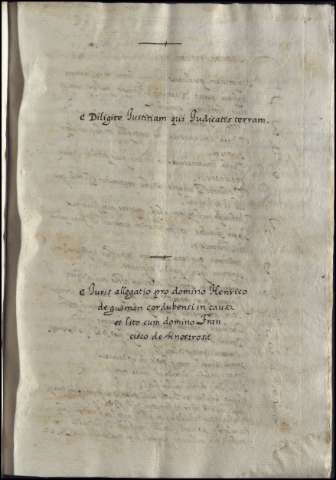 Diligite Justitiam qui Judicates terram.
Juris allegatio pro domino Henrico
de guzman cordubensi in causa
et lite cum domino Fran
cisco de hinostrosa